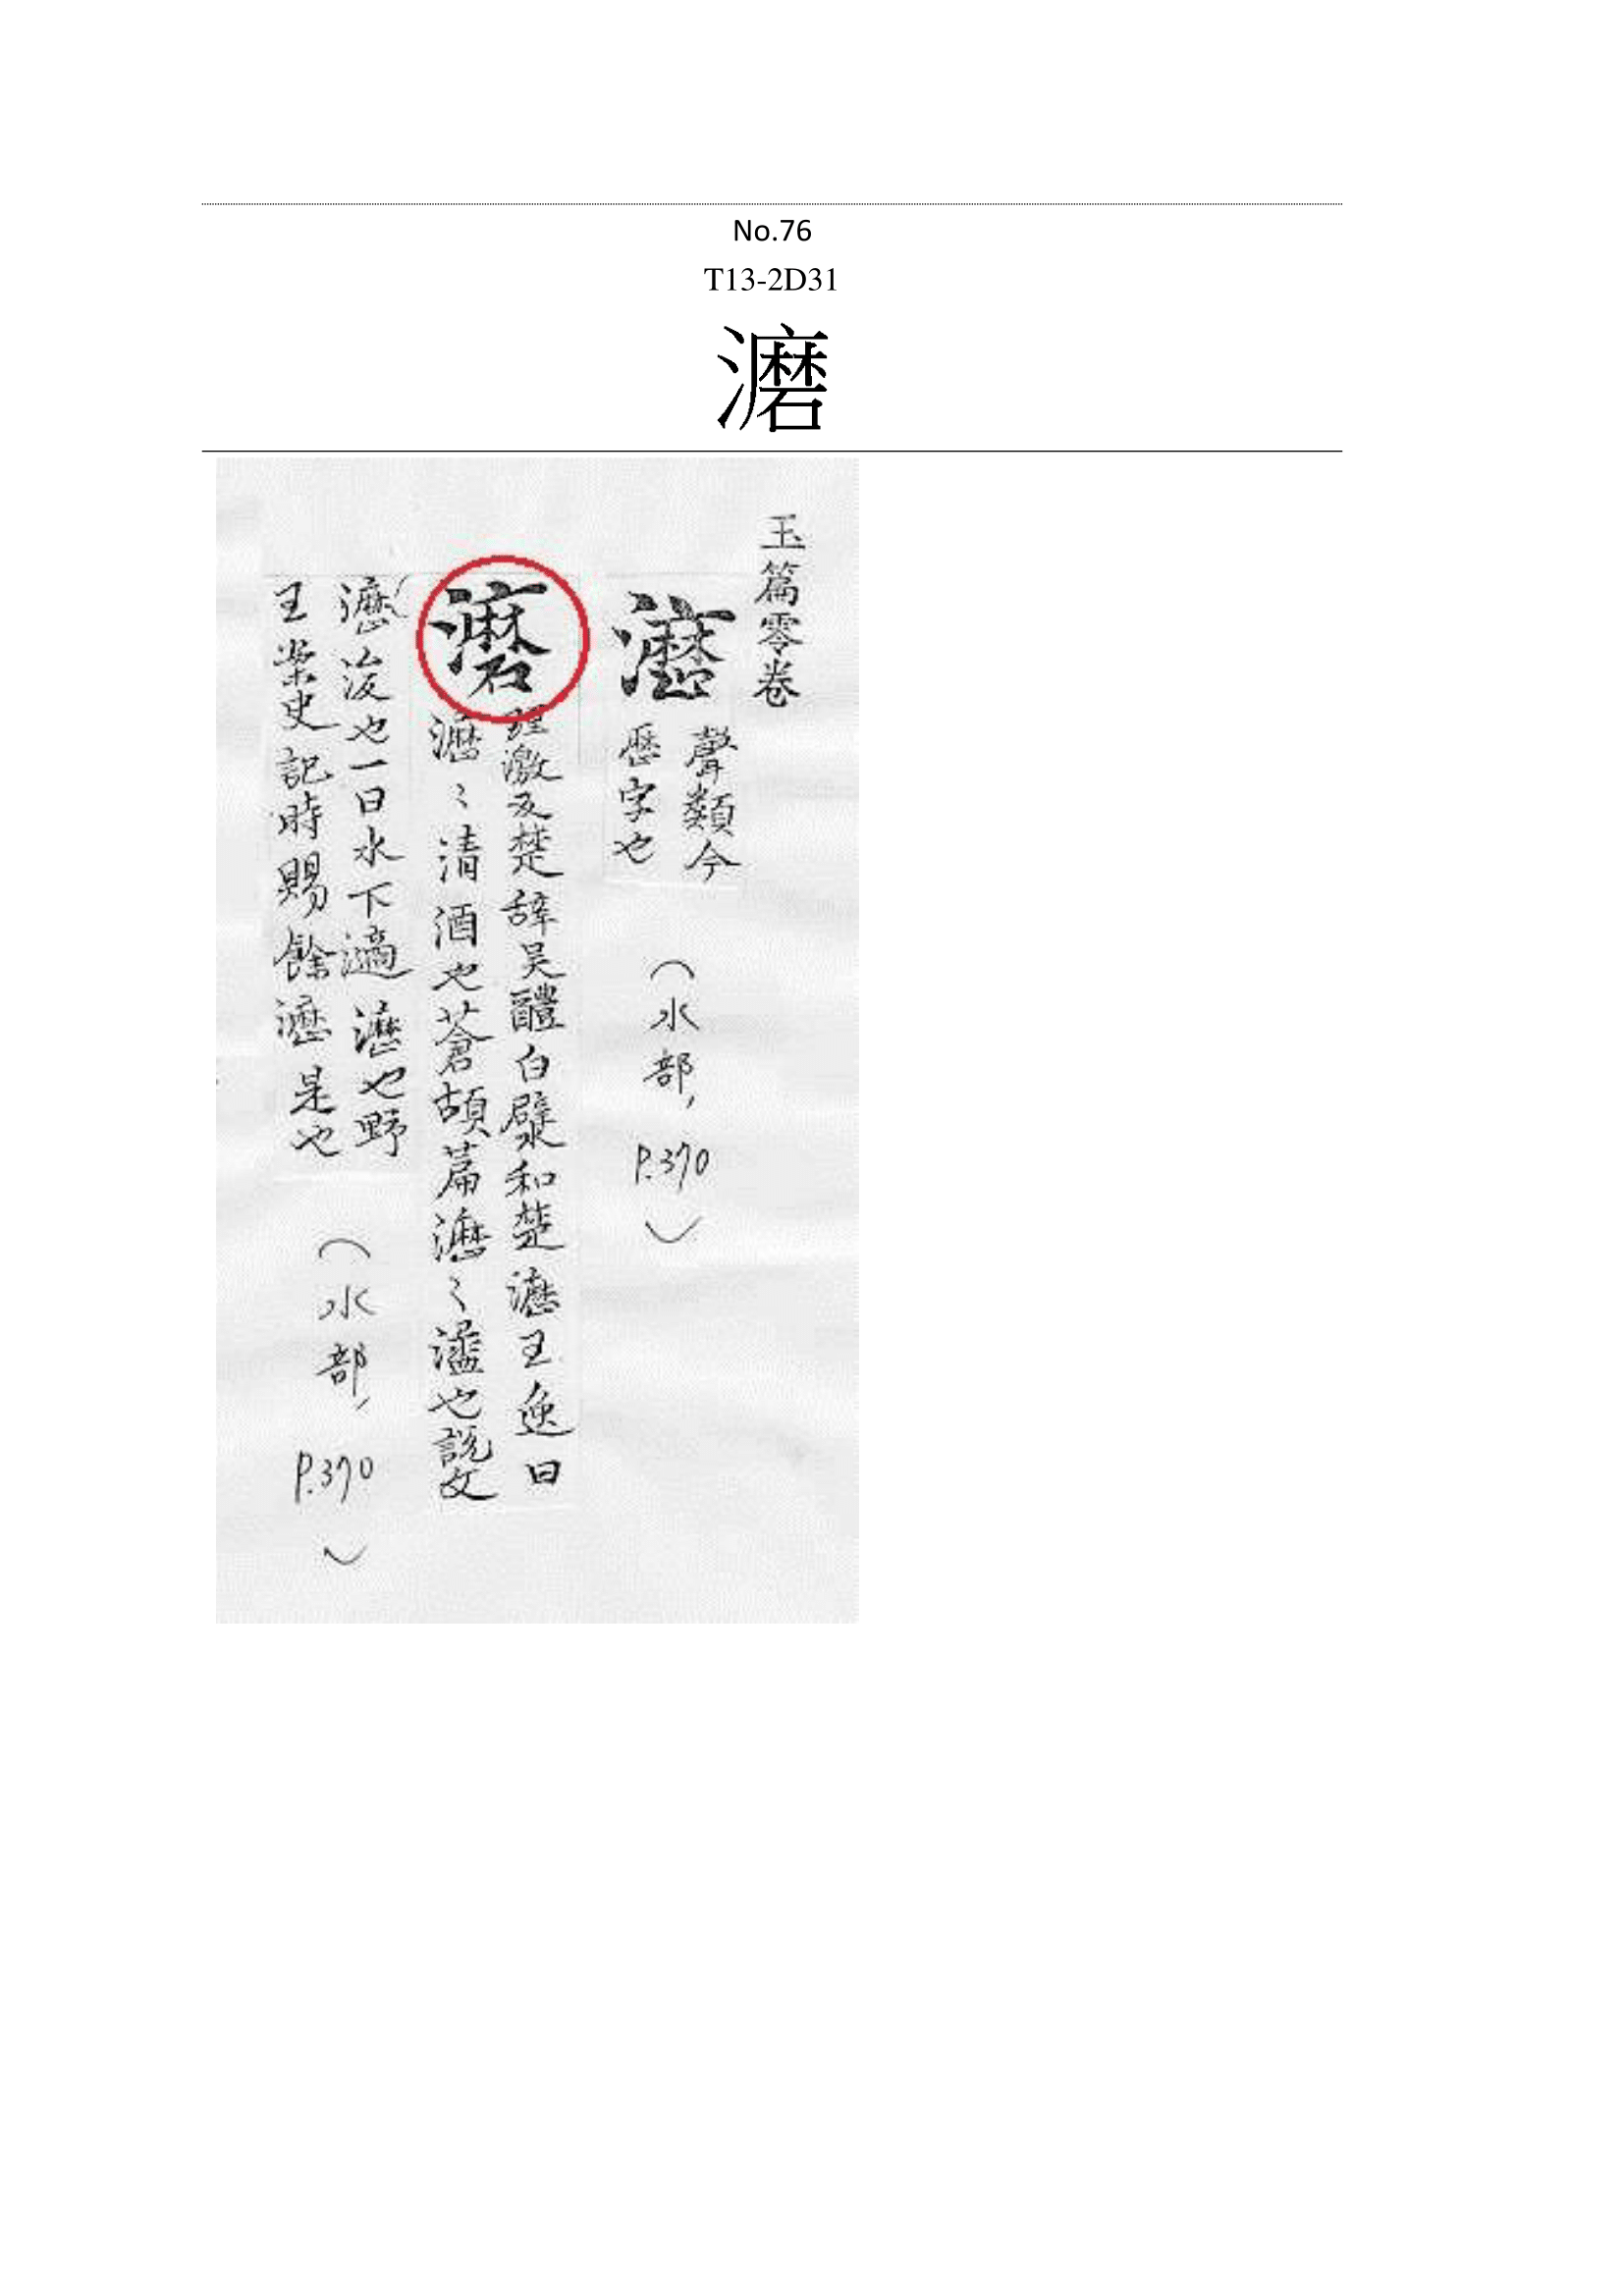 No.76
T13-2D31
灖
玉篇零卷
聲類今
歷字也
(水部, P.370)
激反楚辞吴醴白櫱和楚瀝王逸曰
瀝〻清酒也蒼頡篇瀝〻㵕也説文
瀝浚也一曰水下滴瀝也野
王案史記時賜餘瀝是也
(水部, P.370)